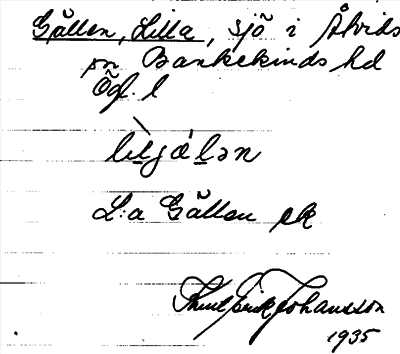 Gållen, Lilla, sjö i Åtvids
sn Bankekinds hd
Ögl. l
L:a Gållen ek
Knut Erik Johansson
1935